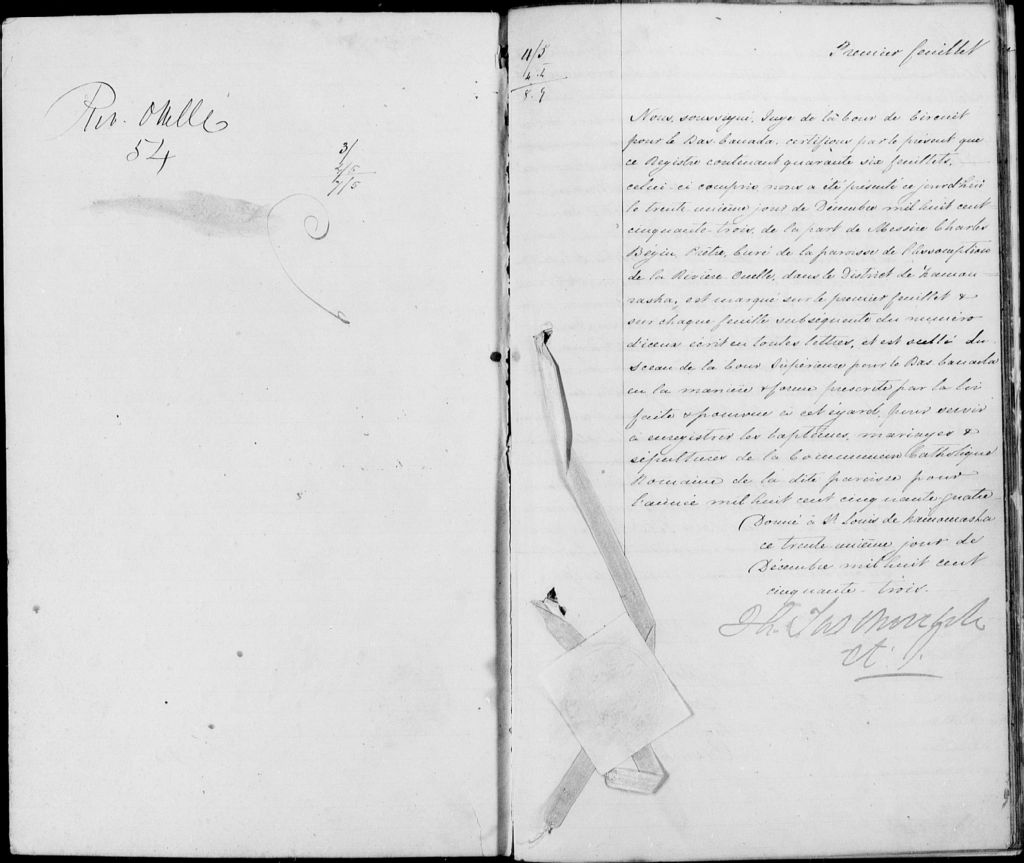 Riv. Ouelle
54
3/
4/5
7/5
11/8
8.9
Premier feuillet
Nous, soussigné, Juge de la Cour de Circuit
pour le Bas-Canada, certifions par le présent que
ce Registre contenant quarante six feuillets,
celui-ci compris, nous a été présenté ce jourd'hui
le trente unième jour de Décembre mil huit cent
cinquante-trois, de la part de Messire Charles
Bégin, Prêtre, Curé de la paroisse de l'Assomption
de la Rivière Ouelle, dans le District de Kamou-
raska, est marqué sur le premier feuillet &
sur chaque feuille subséquente du numéro
d'iceux écrit en toutes lettres, et est scellé du
Sceau de la Cour Supérieure pour le Bas Canada
en la manière & forme prescrite par la loi
faite & pourvue à cet égard, pour servir
à enregistrer les baptêmes, mariages &
sépultures de la Communion Catholique
Romaine de la dite paroisse pour
l'année mil huit cent cinquante quatre
Donné à St Louis de Kamouraska
ce trente unième jour de
Décembre mil huit cent
cinquante-trois.